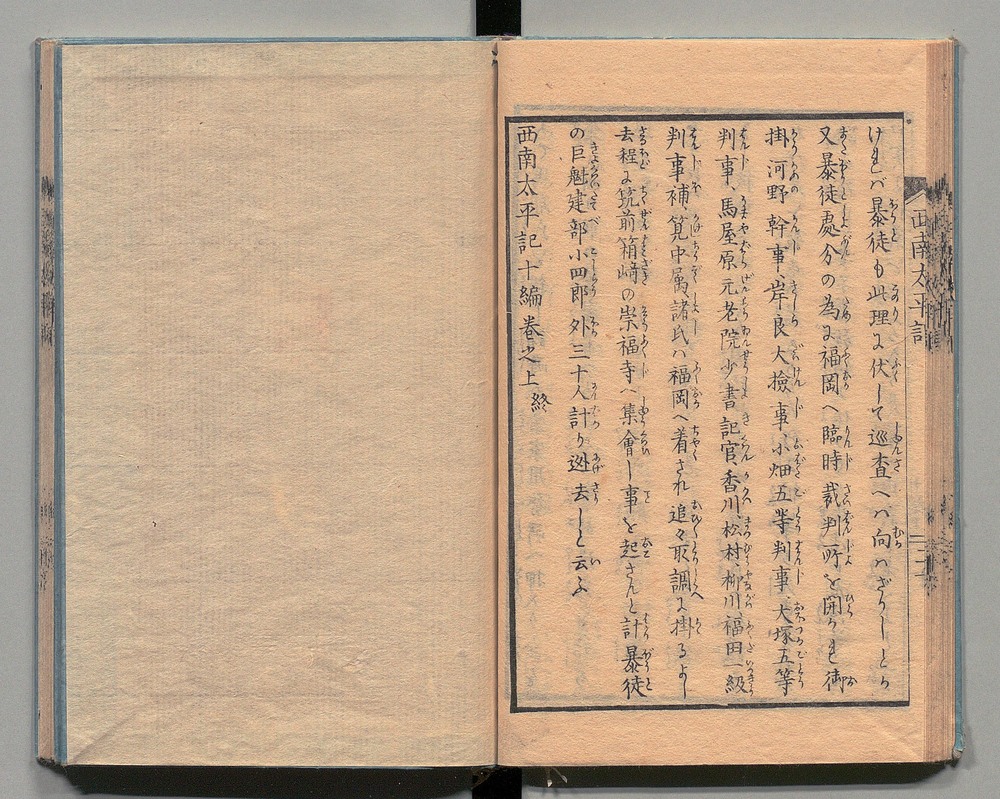 けれバ暴徒も此理に伏して巡査へハ向ハざりしとか
又暴徒處分の為に福岡へ臨時裁判所を開かれ御
掛河野幹事、岸良大撿事、小畑五等判事、大塚五等
判事、馬屋原元老院少書記官、香川、松村、柳川、福田一級
判事補、筧中属諸氏ハ福岡へ着され追々取調に掛るよし
去程に筑前箱﨑の崇福寺へ集會し事を起さんと計暴徒
の巨魁建部小四郎外三十人計り迯去しと云ふ
西南太平記十編巻之上終
西南太平記